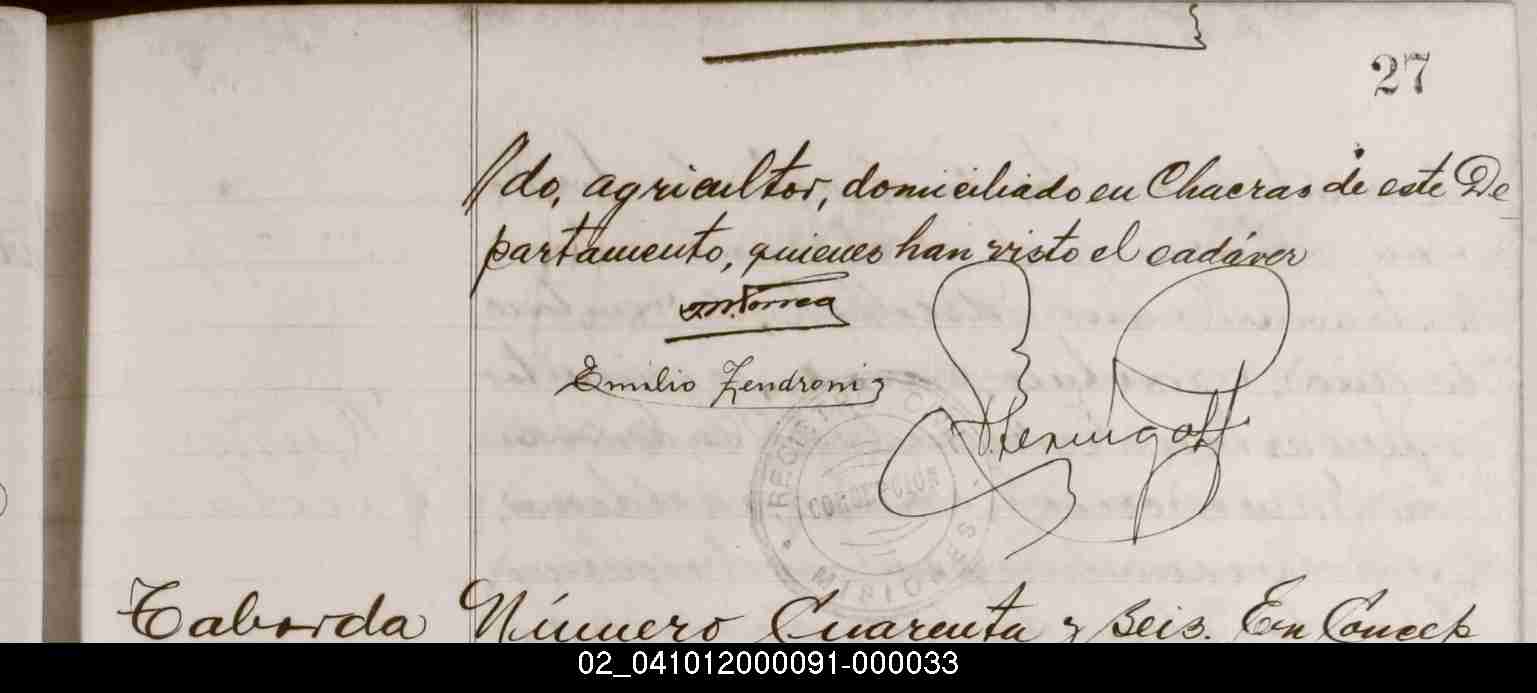 27
//do, agricultor, domiciliado en Chacras de este De
partamento, quienes han visto el cadáver
Emilio Zendroni
REGISTRO
MISIONES
Taborda Número Cuarenta y Seis. En Concep
02_041012000091-000033